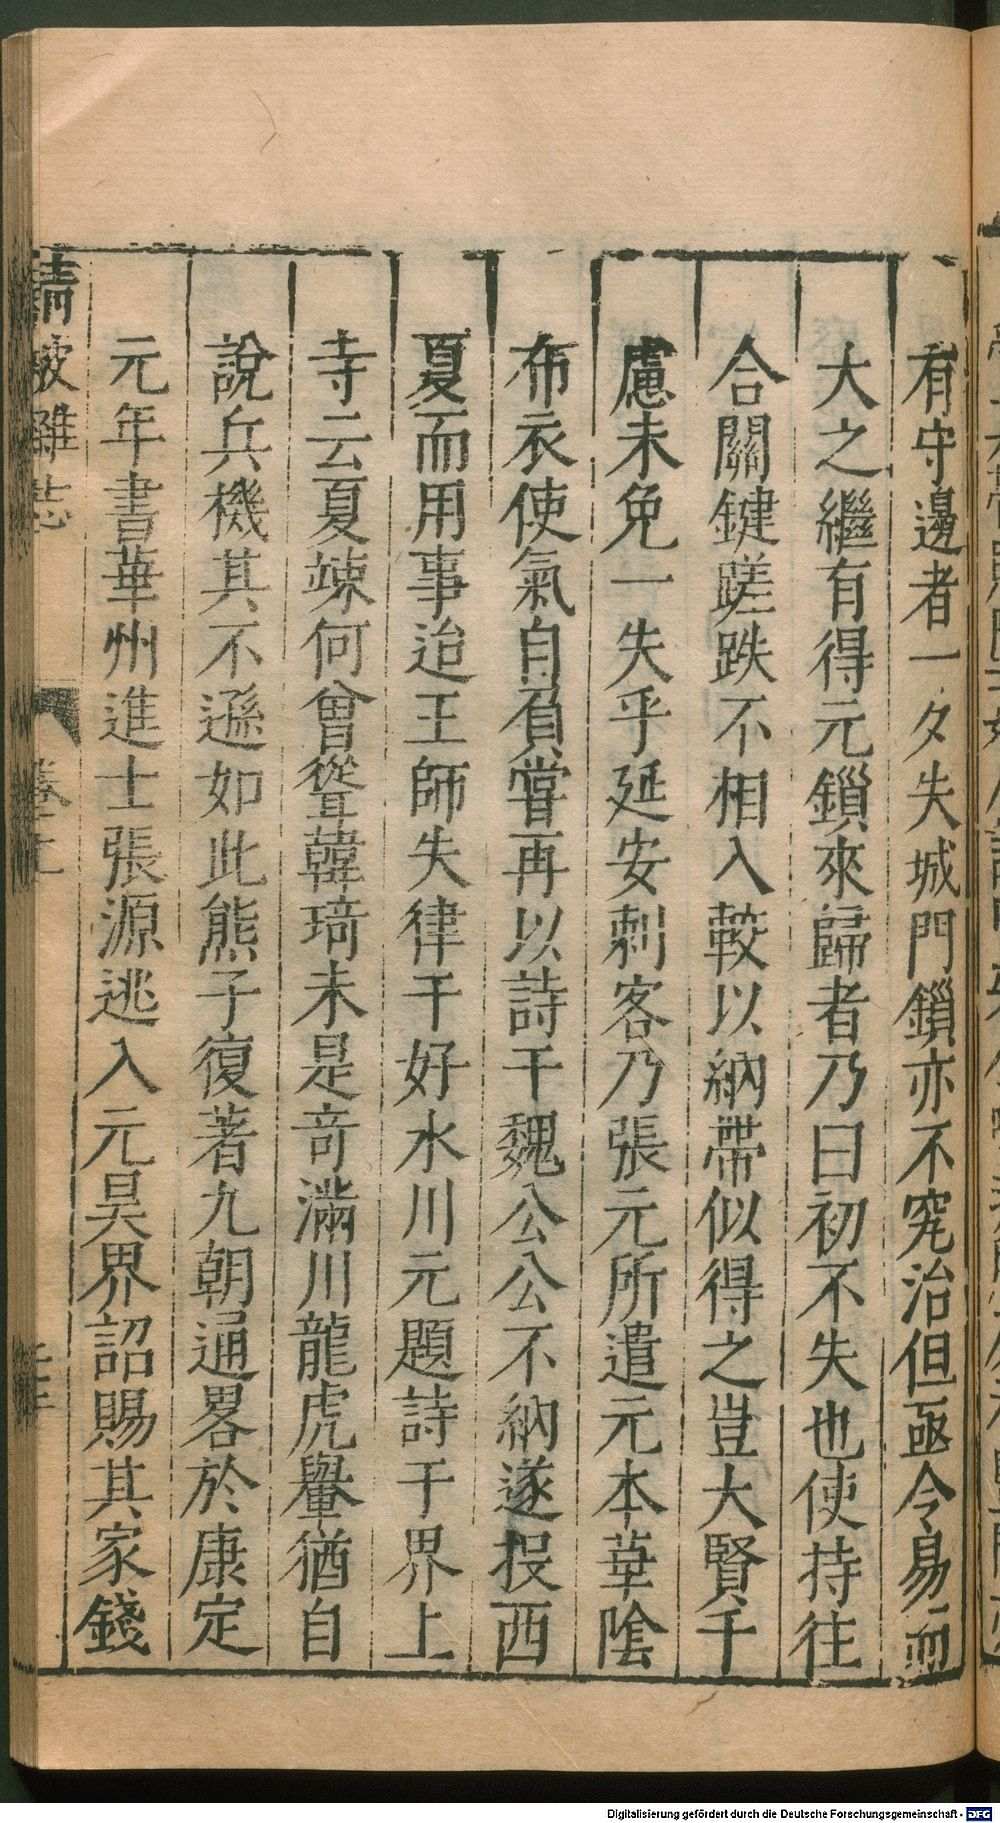 有守邊者一夕失城門鎖亦不究治但亟令易而
大之繼有得元鎖來歸者乃曰初不失也使持往
合關鍵蹉跌不相入較以納帶似得之豈大賢千
慮未免一失乎延安刺客乃張元所遣元本華陰
布衣使氣自負嘗再以詩干魏公公不納遂投西
夏而用事迨王師失律于好水川元題詩于界上
寺云夏竦何曾聳韓琦未是竒滿川龍虎轝猶自
說兵機其不遜如此熊子復著九朝通畧於康定
元年書華州進士張源逃入元昊界詔賜其家錢
清波雜志
Digitalisierung gefördert durch die Deutsche Forschungsgemeinschaft - DFG